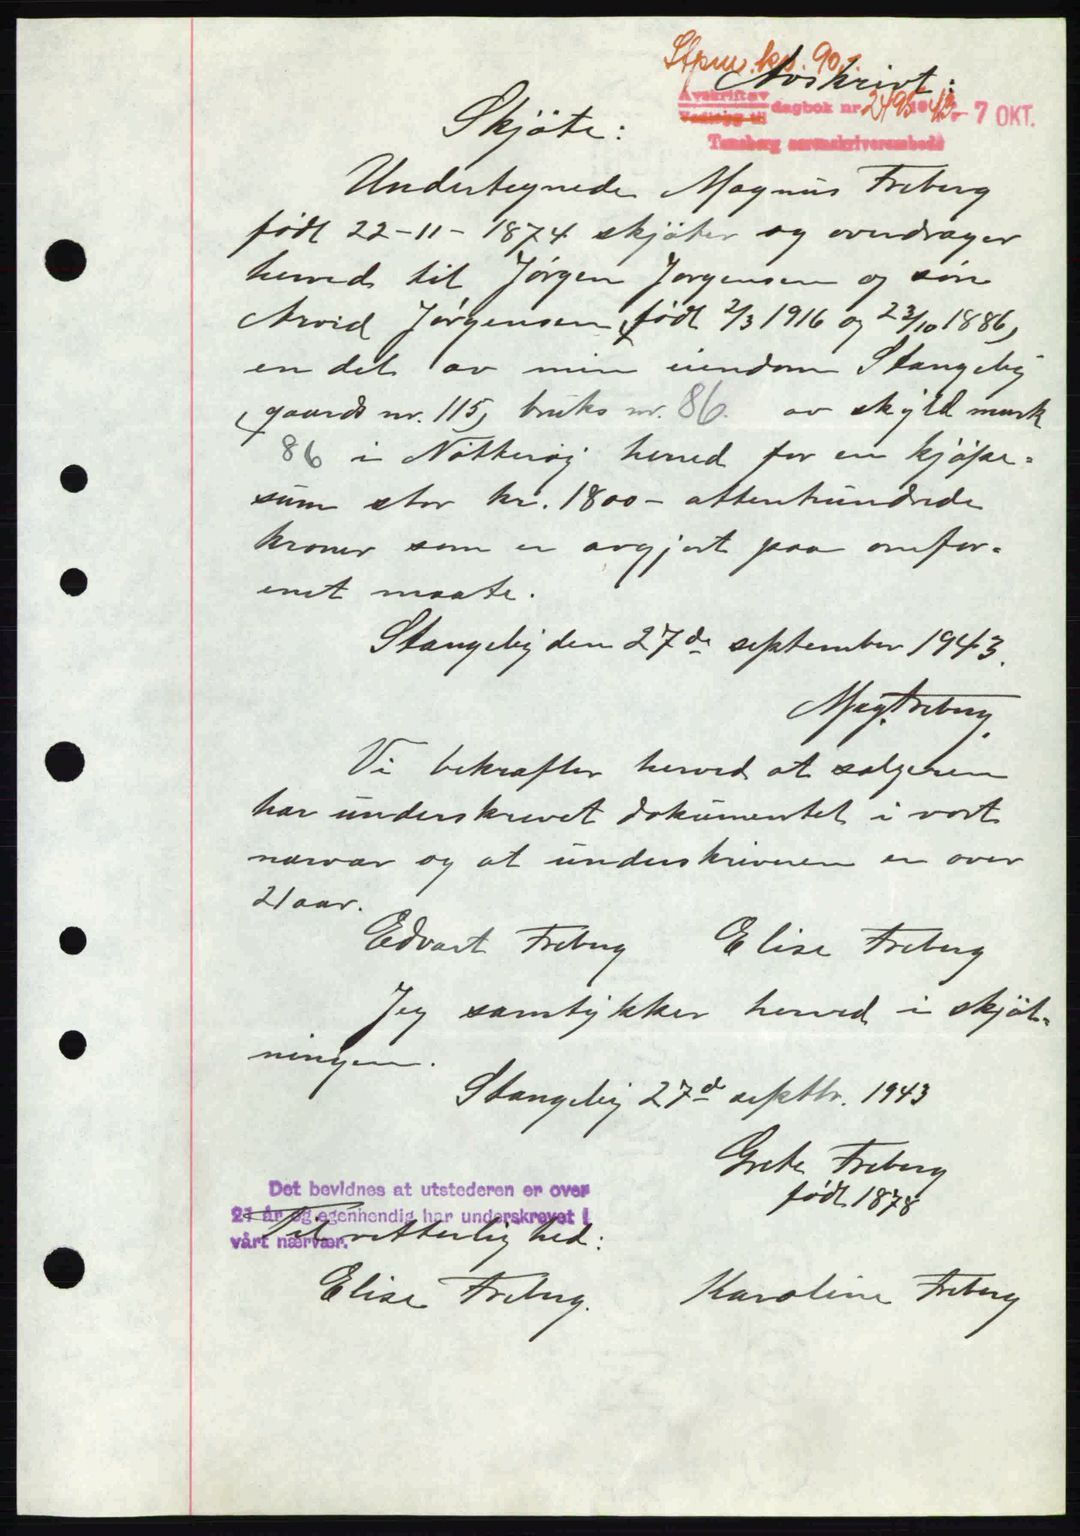 Stpm. kr. 90,-
Avskrivt:
Avskrift av
Vedlegg til
dagbok nr. 2495 1943 - 7 OKT.
Tønsberg sorenskriverembede
Skjöte:
Undertegnede Magnus Freberg
født 22-11-1874 skjöter og overdrager
herved til Jørgen Jørgensen og sön
Arvid Jørgensen, født 2/3 1916 og 23/10 1886,
en del av min eiendom Stangeby
(gaards nr. 115, bruks nr. 86 av skyld mark
86 i Nötteröy herred for en kjöpe-
sum stor kr. 1800- attenhundrede
kroner som er avgjort paa omfor-
enet maate.
Stangeby den 27de september 1943.
Mag. Freberg.
Vi bekrafter herved at selgeren
har underskrevet dokumentet i vort
nærvær og at underskriveren er over
21 aar.
Edvart Freberg Elise Freberg
Jeg samtykker herved i skjöt-
ningen.
Stangeby 27d septbr. 1943
Grete Freberg
født 1878
Det bevidnes at utstederen er over
21 år og egenhendig har underskrevet i
vårt nærvær.
Til vitterlighed:
Elise Freberg. Karoline Freberg